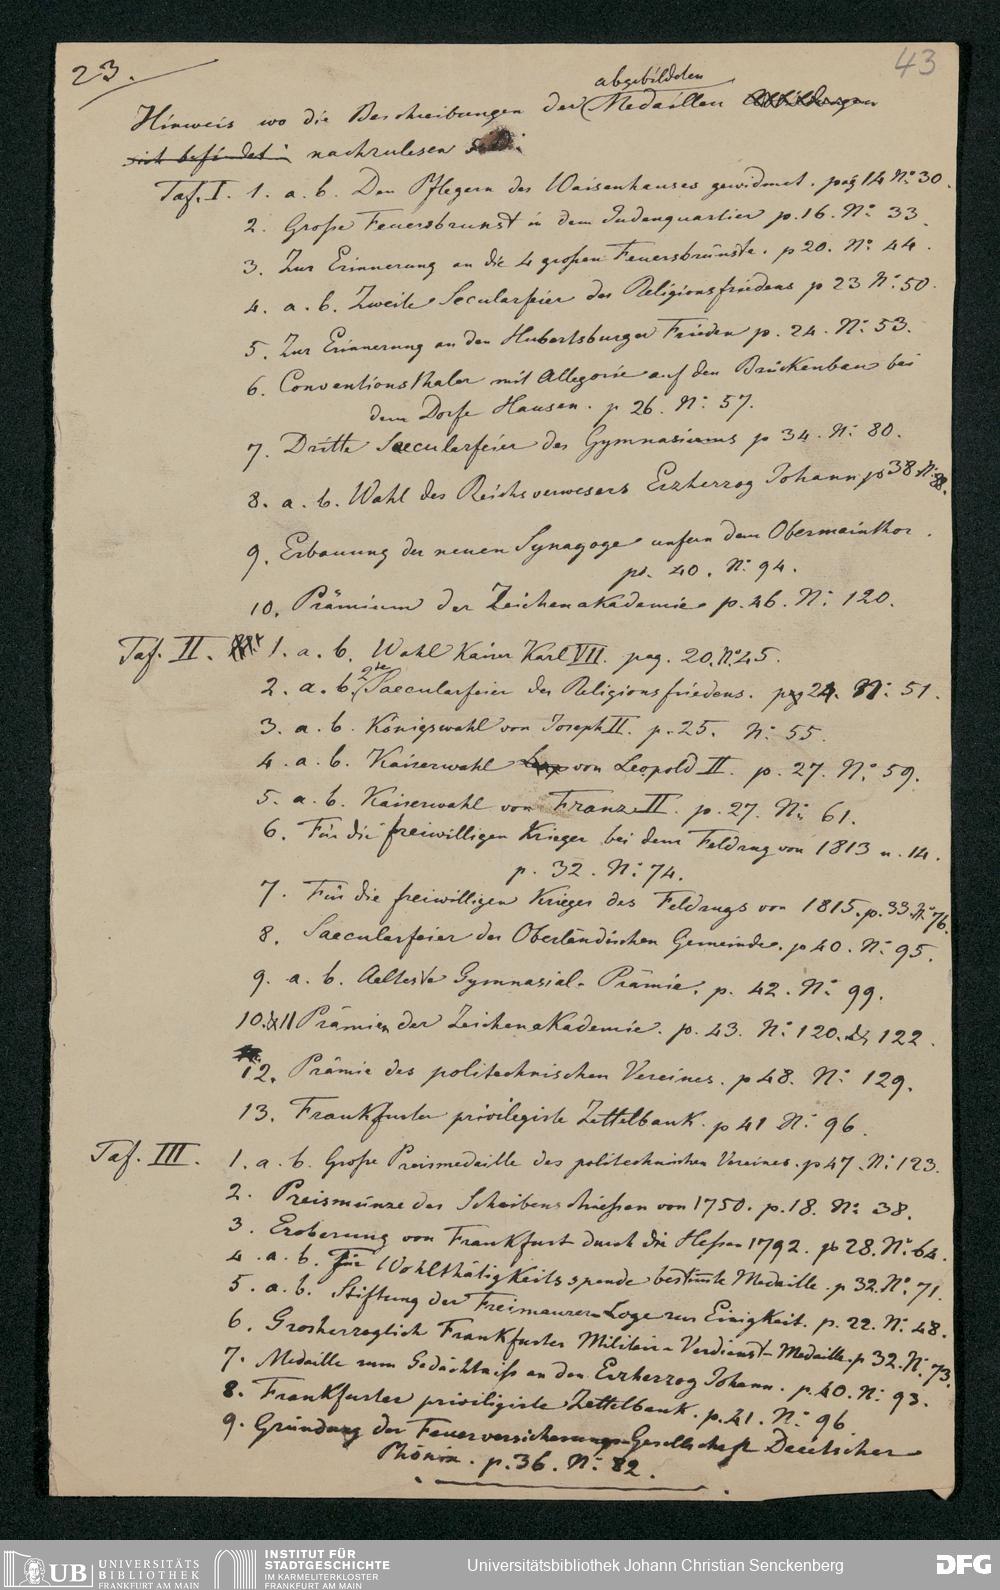 23.
43
abgebildeten
Hinweis wo die Beschreibungen der Medaillen Abbildungen
sich befindet nachzulesen
Taf. I. 1. a. b. Den Pflegern des Waisenhauses gewidmet. pag 14 No: 30.
2. Große Feuersbrunst in dem Judenquartier p. 16. No: 33.
3. Zur Erinnerung an die 4 großen Feuersbrünste. p 20. No: 44.
4. a. b. Zweite Secularfeier des Religionsfriedens p 23 No: 50.
5. Zur Erinnerung an den Hubertsburger Frieden p. 24. No: 53.
6. Conventionsthaler mit Allegorie auf den Brückenbau bei
dem Dorfe Hausen. p 26. No: 57.
7. Dritte Saecularfeier des Gymnasiums p 34. No: 80.
8. a. b. Wahl des Reichsverwesers Erzherzog Johann p 38 No: 88.
9. Erbauung der neuen Synagoge unfern dem Obermainthor.
p. 40. No: 94.
10. Prämium der Zeichenakademie p. 46. No: 120.
Taf. II. 1. a. b. Wahl Kaiser Karl VII. pag. 20. No: 45.
2. a. b. 2te Saecularfeier des Religionsfriedens. pag 24. No: 51.
3. a. b. Königswahl von Joseph II. p. 25. No: 55.
4. a. b. Kaiserwahl von Leopold II. p. 27. No: 59.
5. a. b. Kaiserwahl von Franz II. p. 27. No: 61.
6. Für die freiwilligen Krieger bei dem Feldzug von 1813 u. 14.
p. 32. No: 74.
7. Für die freiwilligen Krieger des Feldzugs von 1815. p. 33. No: 76.
8. Saecularfeier der Oberländischen Gemeinde. p 40. No: 95.
9. a. b. Aelteste Gymnasial-Prämie. p. 42. No: 99.
10. & 11 Prämien der Zeichenakademie. p. 43. No: 120. & 122.
12. Prämie des politechnischen Vereines. p 48. No: 129.
13. Frankfurter privilegirte Zettelbank. p 41 No: 96.
Taf. III. 1. a. b. Große Preismedaille des politechnischen Vereines. p 47. No: 123.
2. Preismünze des Scheibenschießen von 1750. p. 18. No: 38.
3. Eroberung von Frankfurt durch die Hessen 1792. p 28. No: 64.
4. a. b. Für Wohlthätigkeitsspende bestimte Medaille. p 32. No: 71.
5. a. b. Stiftung der Freimaurer-Loge zur Einigkeit. p. 22. No: 48.
6. Grosherzoglich Frankfurter Militair-Verdienst-Medaille. p 32. No: 73.
7. Medaille zum Gedächtniß an den Erzherzog Johann. p. 40. No: 93.
8. Frankfurter priviligirte Zettelbank. p. 41. No: 96
9. Gründung der Feuerversicherungs-Gesellschaft Deutscher
Phönix. p. 36. No: 82.
UB UNIVERSITÄTS
BIBLIOTHEK
FRANKFURT AM MAIN
INSTITUT FÜR
STADTGESCHICHTE
IM KARMELITERKLOSTER
FRANKFURT AM MAIN
Universitätsbibliothek Johann Christian Senckenberg
DFG